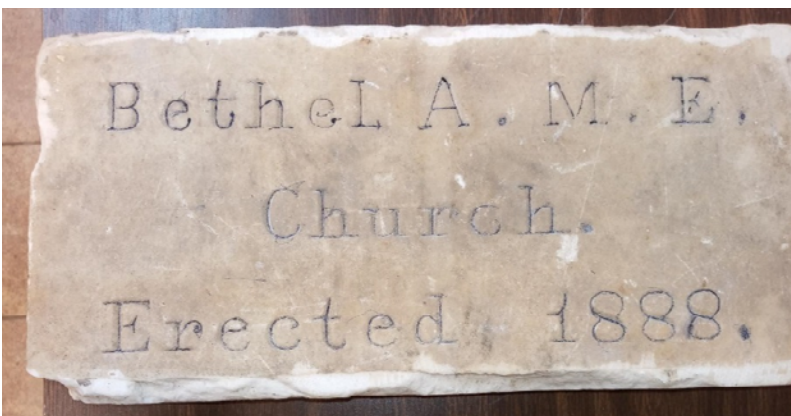 Bethel A. M. E.
Church.
Erected 1888.